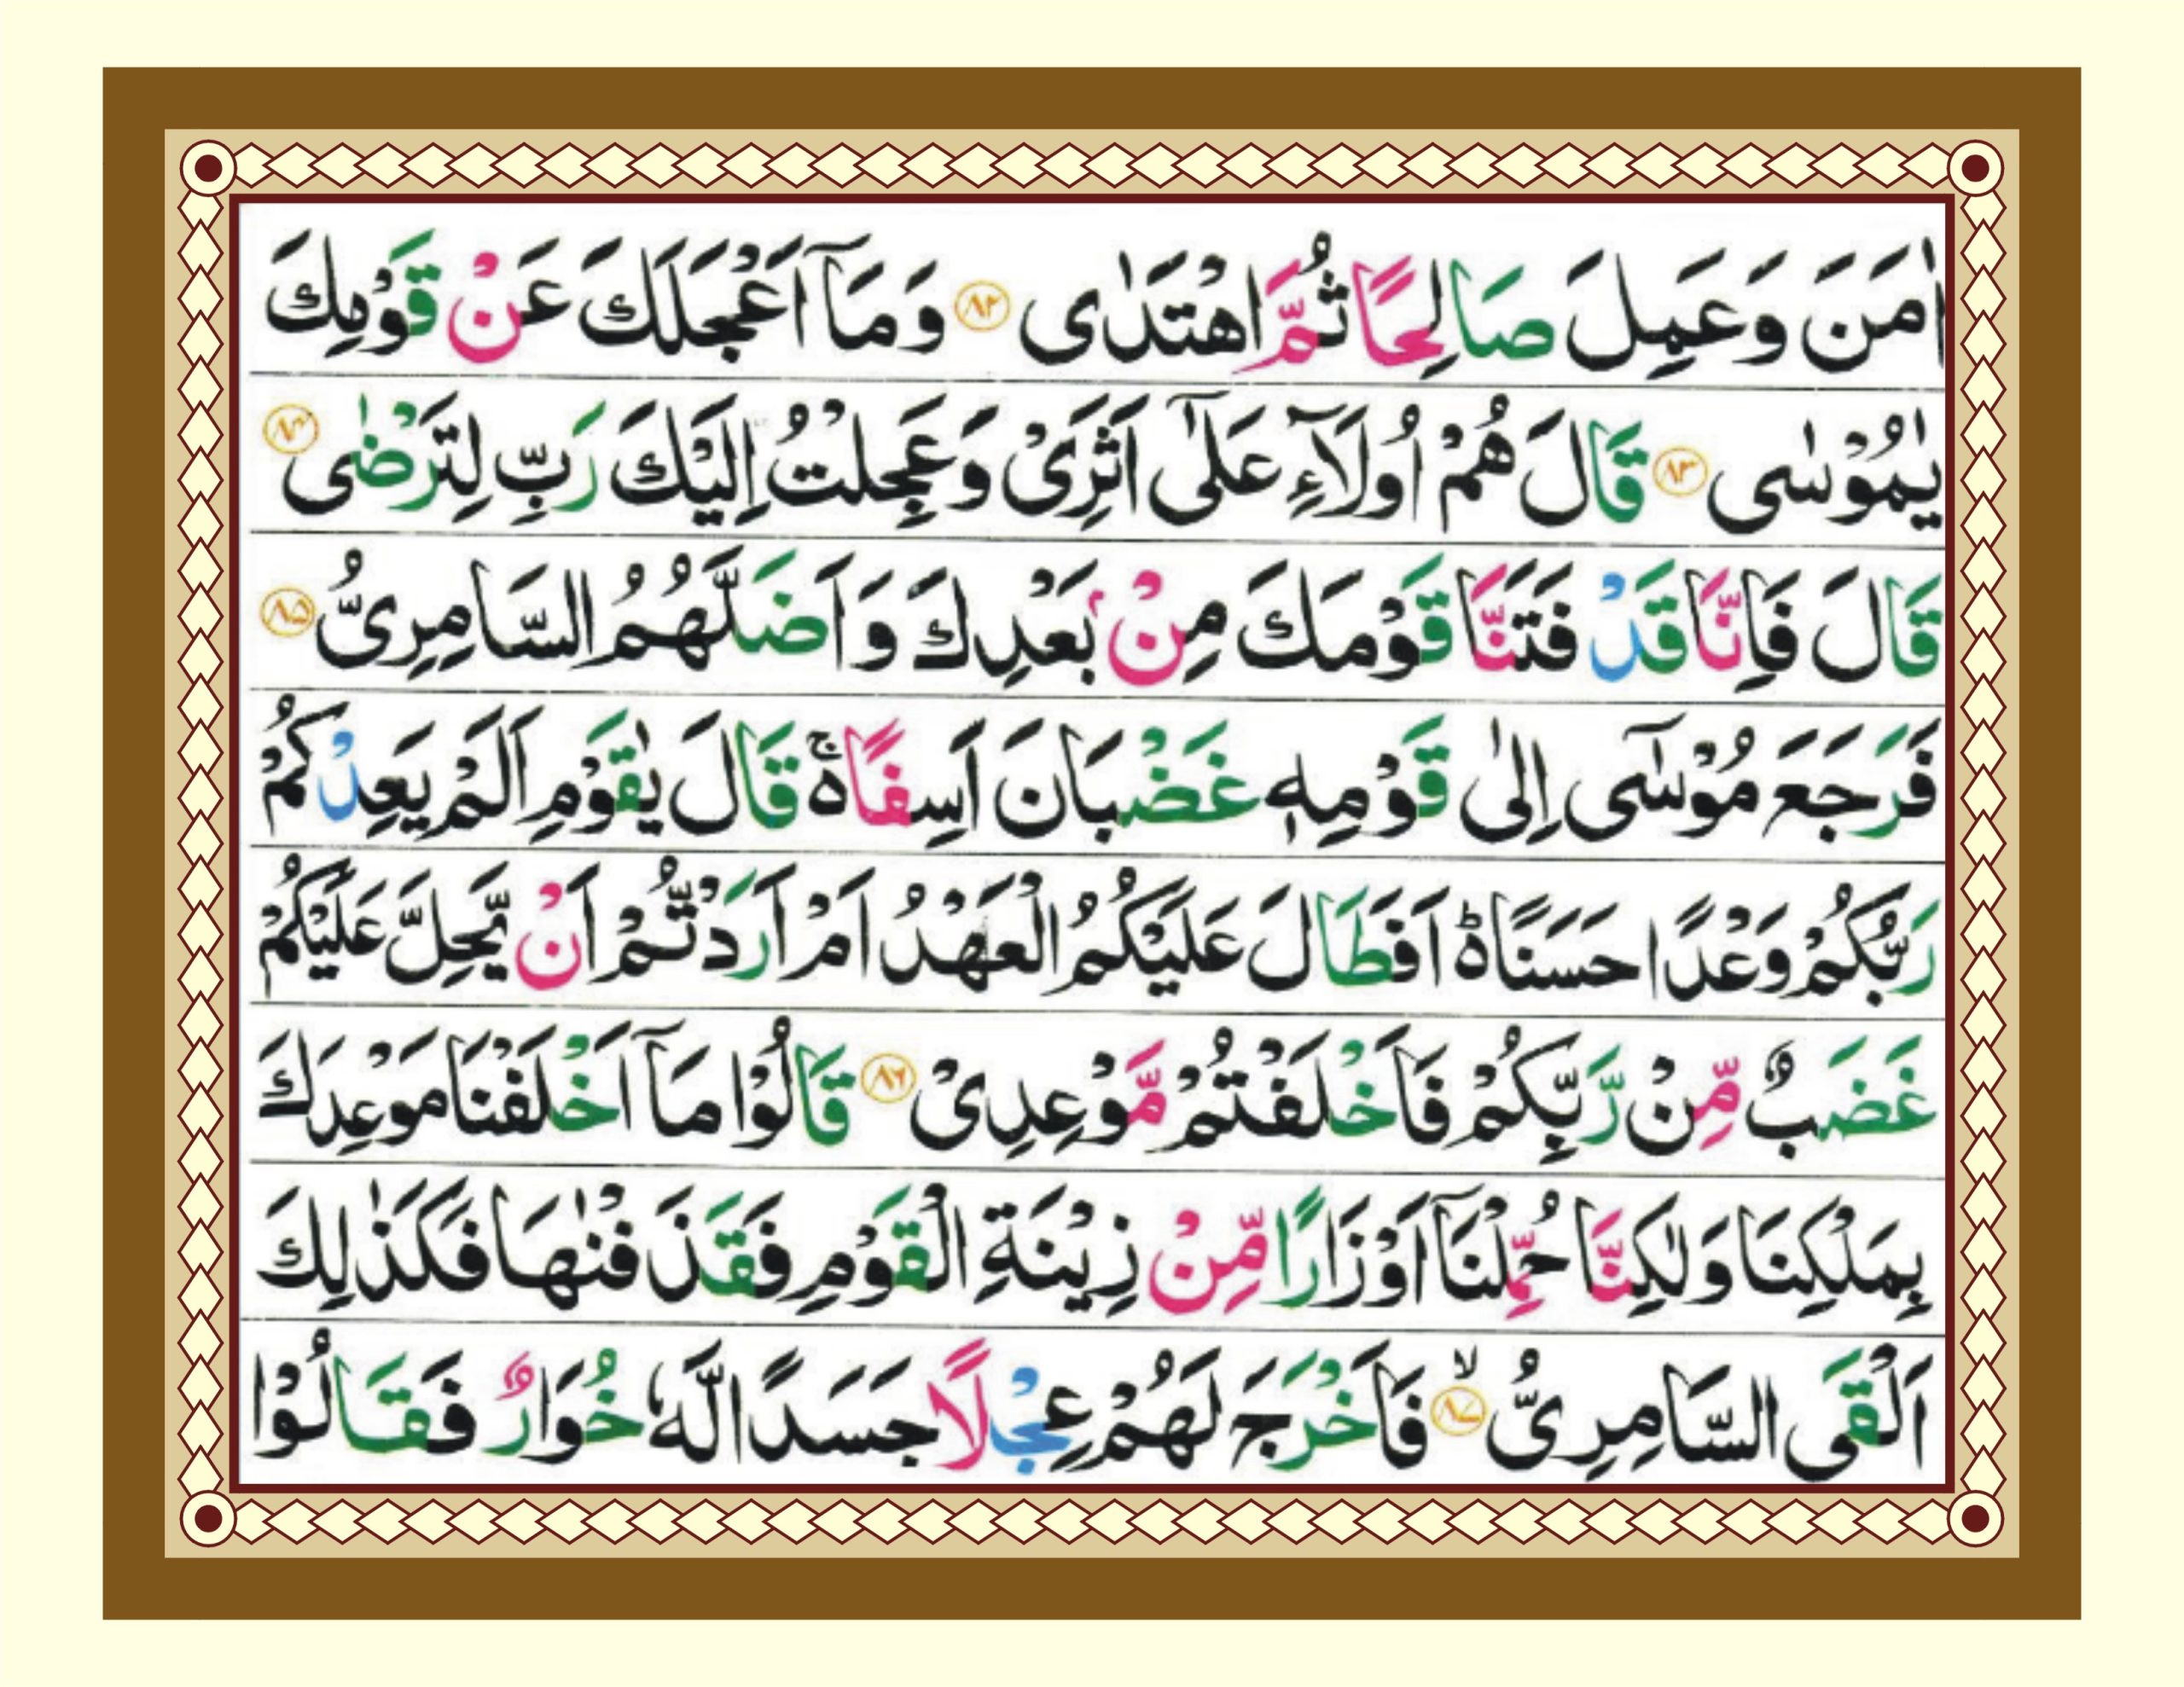 اٰمَنَ وَعَمِلَ صَالِحًا ثُمَّ اهْتَدٰى ﴿۸۲﴾ وَمَاۤ اَعْجَلَكَ عَنْ قَوْمِكَ
يٰمُوْسٰى ﴿۸۳﴾ قَالَ هُمْ اُولَآءِ عَلٰٓى اَثَرِىْ وَعَجِلْتُ اِلَيْكَ رَبِّ لِتَرْضٰى ﴿۸۴﴾
قَالَ فَاِنَّا قَدْ فَتَنَّا قَوْمَكَ مِنْۢ بَعْدِكَ وَاَضَلَّهُمُ السَّامِرِىُّ ﴿۸۵﴾
فَرَجَعَ مُوْسٰۤى اِلٰى قَوْمِهٖ غَضْبَانَ اَسِفًا ۚ۬ قَالَ يٰقَوْمِ اَلَمْ يَعِدْكُمْ
رَبُّكُمْ وَعْدًا حَسَنًا ؕ۬ اَفَطَالَ عَلَيْكُمُ الْعَهْدُ اَمْ اَرَدْتُّمْ اَنْ يَّحِلَّ عَلَيْكُمْ
غَضَبٌ مِّنْ رَّبِّكُمْ فَاَخْلَفْتُمْ مَّوْعِدِىْ ﴿۸۶﴾ قَالُوْا مَاۤ اَخْلَفْنَا مَوْعِدَكَ
بِمَلْكِنَا وَلٰكِنَّا حُمِّلْنَاۤ اَوْزَارًا مِّنْ زِيْنَةِ الْقَوْمِ فَقَذَفْنٰهَا فَكَذٰلِكَ
اَلْقَى السَّامِرِىُّ ﴿۸۷﴾ۙ فَاَخْرَجَ لَهُمْ عِجْلًا جَسَدًا لَّهٗ خُوَارٌ فَقَالُوْا